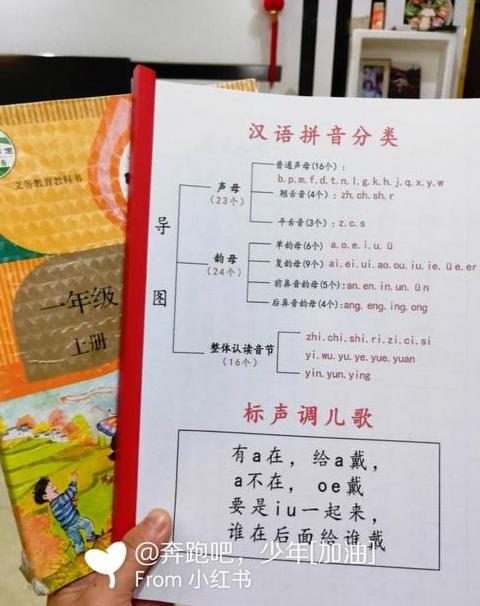 义务教育教科书
一年级
上册
汉语拼音分类
导图
声母
(23个)
普通声母(16个):
b.p.m.f.d.t.n.l.g.k.h.j.q.x.y.w
翘舌音(4个): zh.ch.sh.r
平舌音(3个): z.c.s
韵母
(24个)
单韵母(6个) a.o.e.i.u.ü
复韵母(9个) ai.ei.ui.ao.ou.iu.ie.üe.er
前鼻音韵母(5个):an.en.in.un.ün
后鼻音韵母(4个):ang.eng.ing.ong
整体认读音节
(16个)
zhi.chi.shi.ri.zi.ci.si
yi.wu.yu.ye.yue.yuan
yin.yun.ying
标声调儿歌
有a在，给a戴，
a不在，oe戴
要是iu一起来，
谁在后面给谁戴
@奔跑吧，少年[加油]
From 小红书